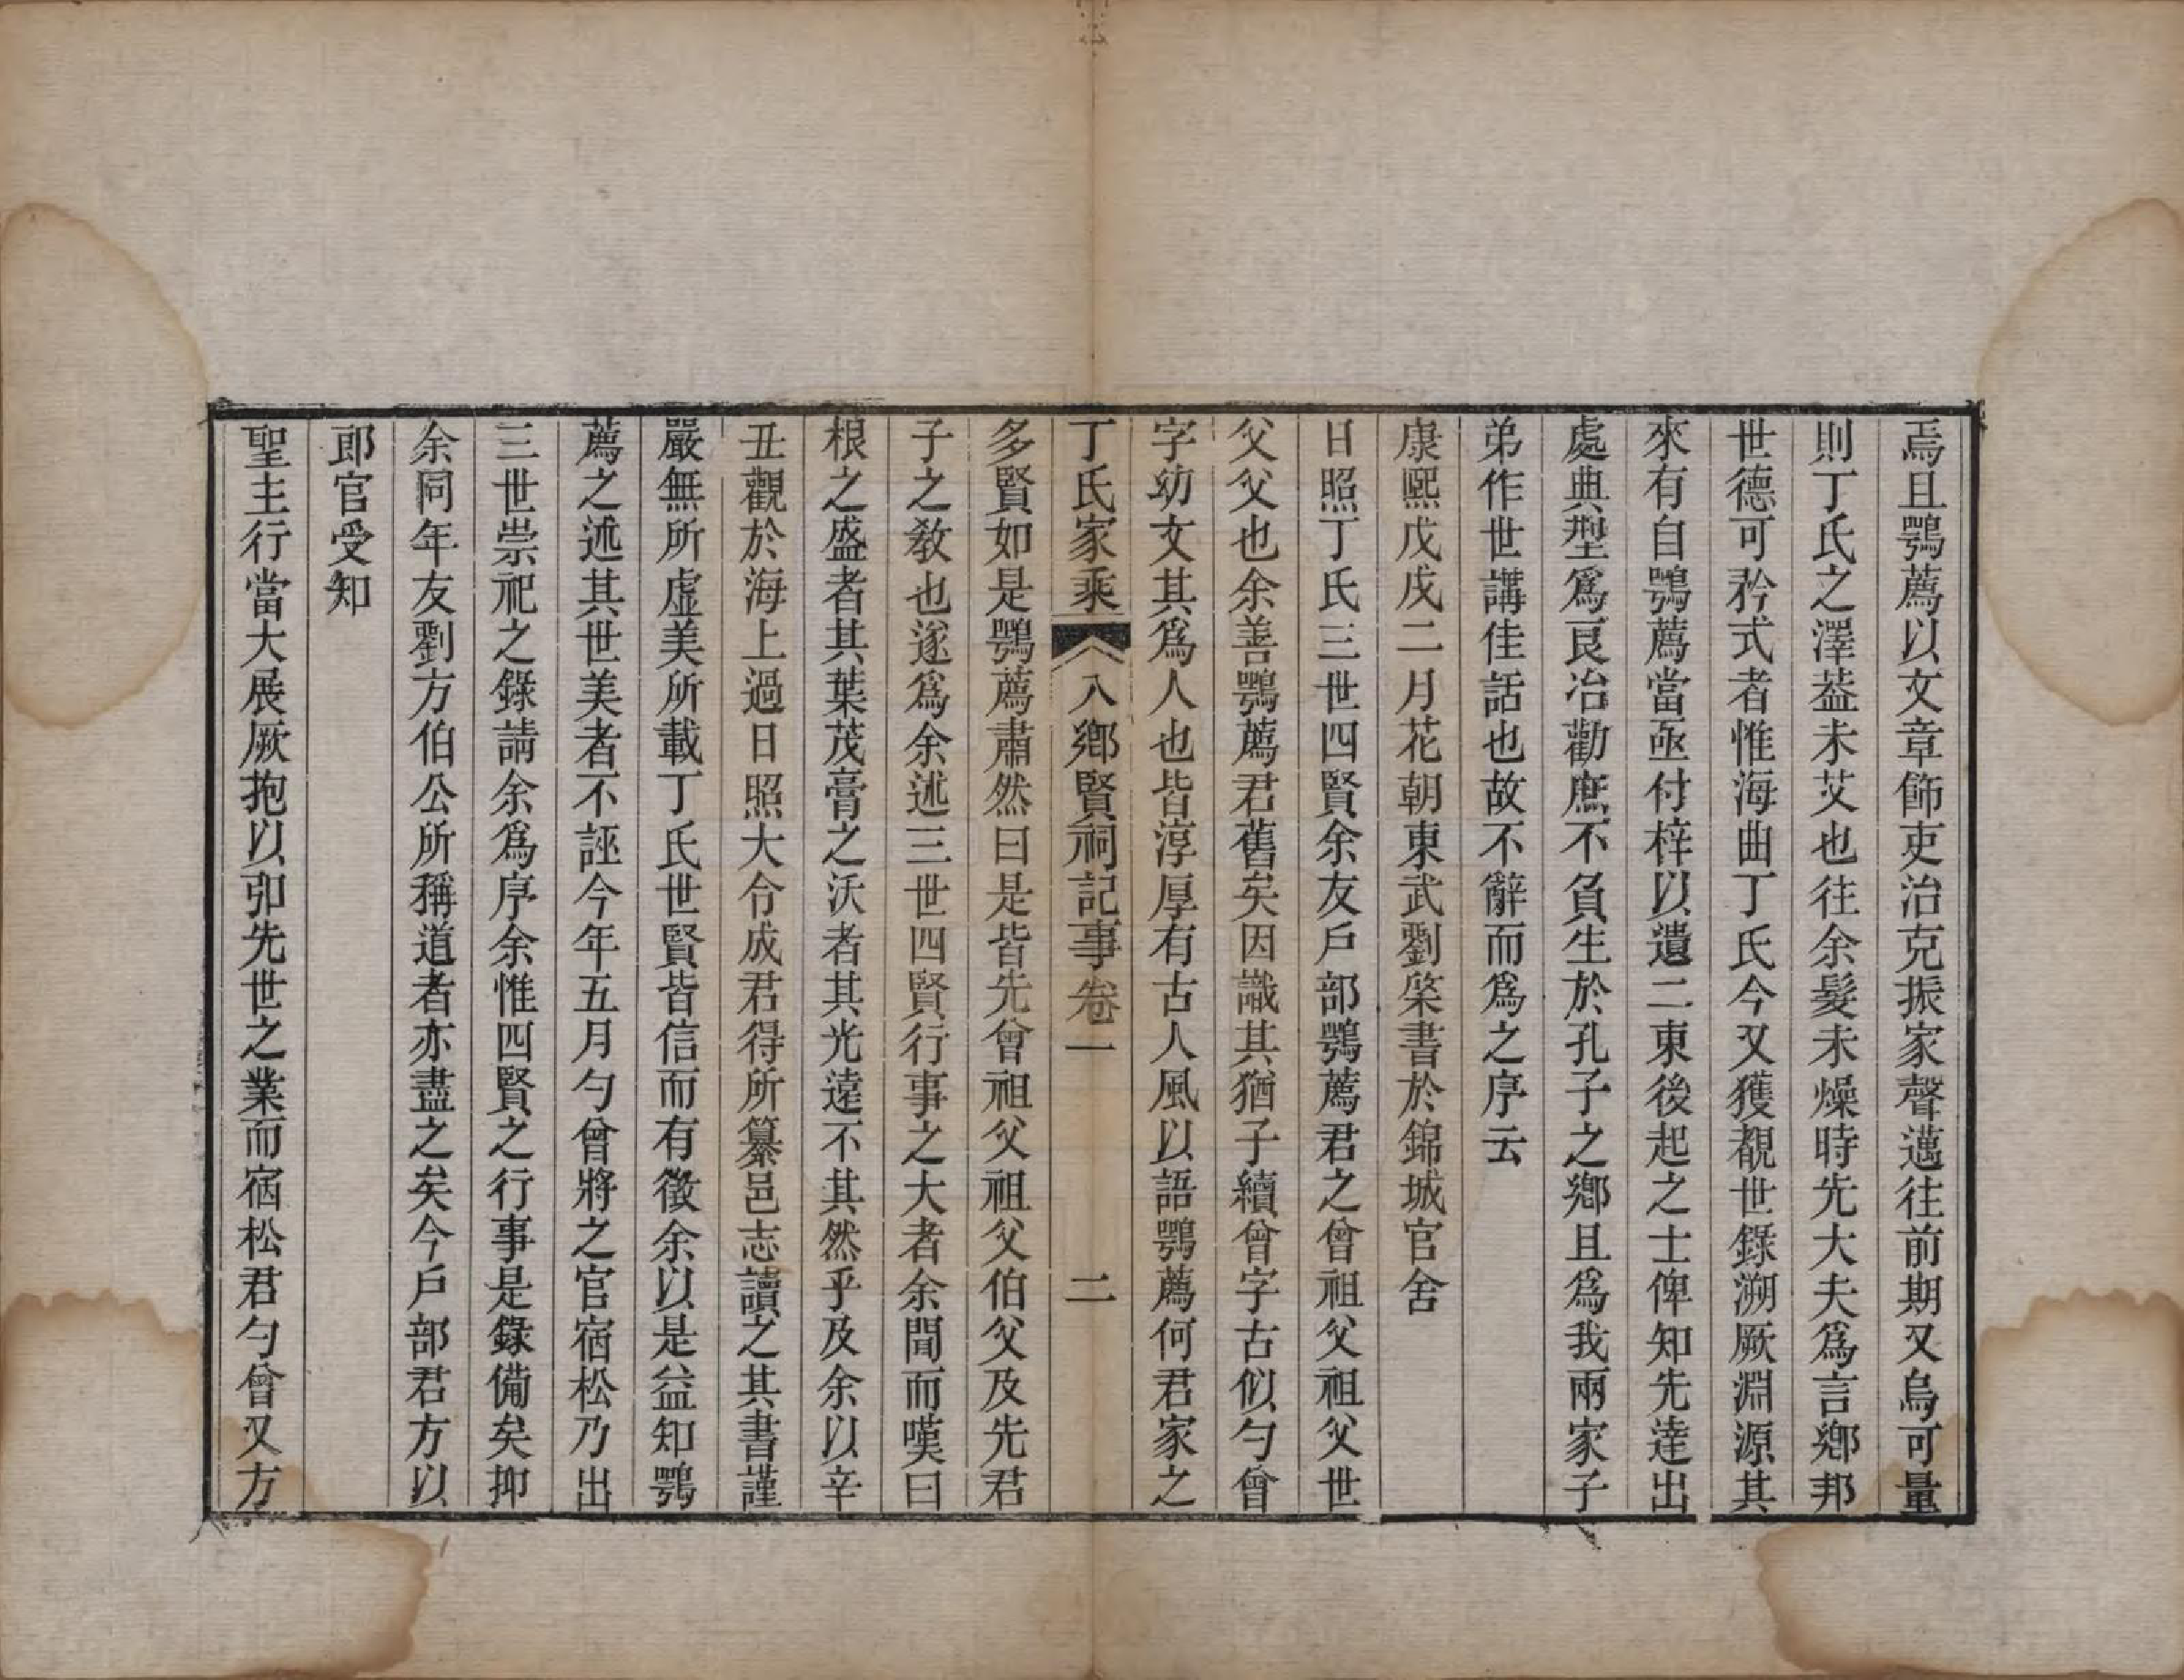 焉且鶚薦以文章飾吏治克振家聲邁往前期又烏可量
則丁氏之澤葢未艾也往余髮未燥時先大夫爲言鄉邦
世德可矜式者惟海曲丁氏今又獲覩世錄溯厥淵源其
來有自鶚薦當亟付梓以遺二東後起之士俾知先達出
處典型爲良冶勸庶不負生於孔子之鄉且爲我兩家子
弟作世講佳話也故不辭而爲之序云
康熙戊戌二月花朝東武劉棨書於錦城官舍
日照丁氏三世四賢余友戶部鶚薦君之曾祖父祖父世
父父也余善鶚薦君舊矣因識其猶子續曾字古似勺曾
字幼文其爲人也皆淳厚有古人風以語鶚薦何君家之
丁氏家乘 入鄉賢祠記事卷一 二
多賢如是鶚薦肅然曰是皆先曾祖父祖父伯父及先君
子之敎也遂爲余述三世四賢行事之大者余聞而嘆曰
根之盛者其葉茂膏之沃者其光遠不其然乎及余以辛
丑觀於海上過日照大令成君得所纂邑志讀之其書謹
嚴無所虛美所載丁氏世賢皆信而有徵余以是益知鶚
薦之述其世美者不誣今年五月勺曾將之官宿松乃出
三世崇祀之錄請余爲序余惟四賢之行事是錄備矣抑
余同年友劉方伯公所稱道者亦盡之矣今戶部君方以
郎官受知
聖主行當大展厥抱以卲先世之業而宿松君勺曾又方